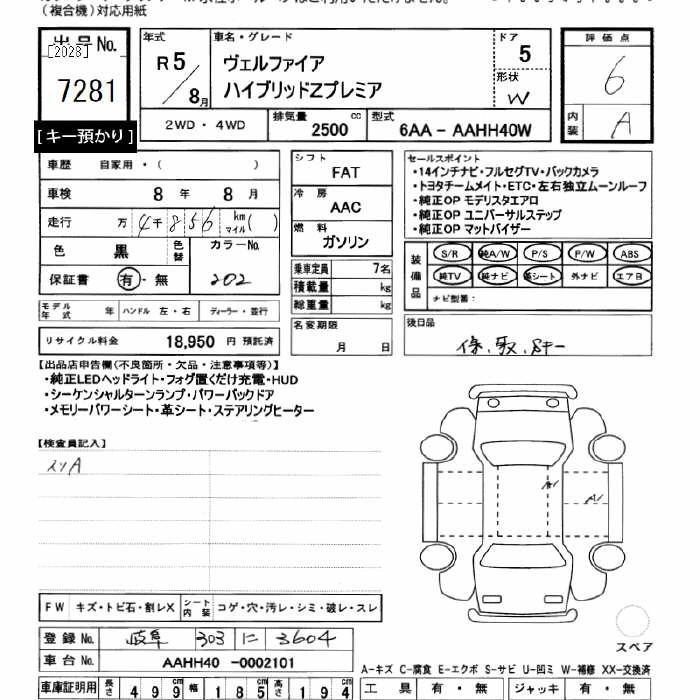 (複合機)対応用紙
出品No.
[2028]
7281
[キー預かり]
年式
R5/8月
車名・グレード
ヴェルファイア
ハイブリッドZプレミア
ドア
5
形状
W
評価点
6
内装
A
2WD・4WD
排気量 2500 cc
型式 6AA-AAHH40W
車歴 自家用・( )
車検 8年 8月
走行 万 4千 8 5 6 km マイル( )
色 黒 色替 カラーNo.
保証書 有・無 202
モデル年式 年 ハンドル 左・右 ディーラー・並行
リサイクル料金 18,950 円 預託済
シフト
FAT
冷房
AAC
燃料
ガソリン
乗車定員 7名
積載量 kg
総重量 kg
名変期限
月 日
セールスポイント
・14インチナビ・フルセグTV・バックカメラ
・トヨタチームメイト・ETC・左右独立ムーンルーフ
・純正OP モデリスタエアロ
・純正OP ユニバーサルステップ
・純正OP マットバイザー
装備品
S/R 純A/W P/S P/W ABS
純TV 純ナビ 革シート 外ナビ エアB
ナビ型番:
後日品
保、取、
【出品店申告欄(不良箇所・欠品・注意事項等)】
・純正LEDヘッドライト・フォグ置くだけ充電・HUD
・シーケンシャルターンランプ・パワーバックドア
・メモリーパワーシート・革シート・ステアリングヒーター
【検査員記入】
スリA
A1
A1
FW キズ・トビ石・割レX シート内装 コゲ・穴・汚レ・シミ・破レ・スレ
登録No. 岐阜 303 に 3604
車台No. AAHH40 -0002101
車庫証明用 長さ 4 9 9 cm 幅 1 8 5 cm 高さ 1 9 4 cm
スペア
A-キズ C-腐食 E-エクボ S-サビ U-凹ミ W-補修 XX-交換済
工具 有・無 ジャッキ 有・無